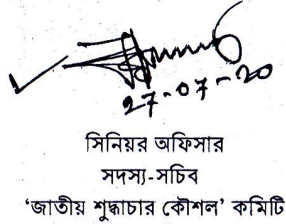 27-07-20
সিনিয়র অফিসার
সদস্য-সচিব
'জাতীয় শুদ্ধাচার কৌশল' কমিটি